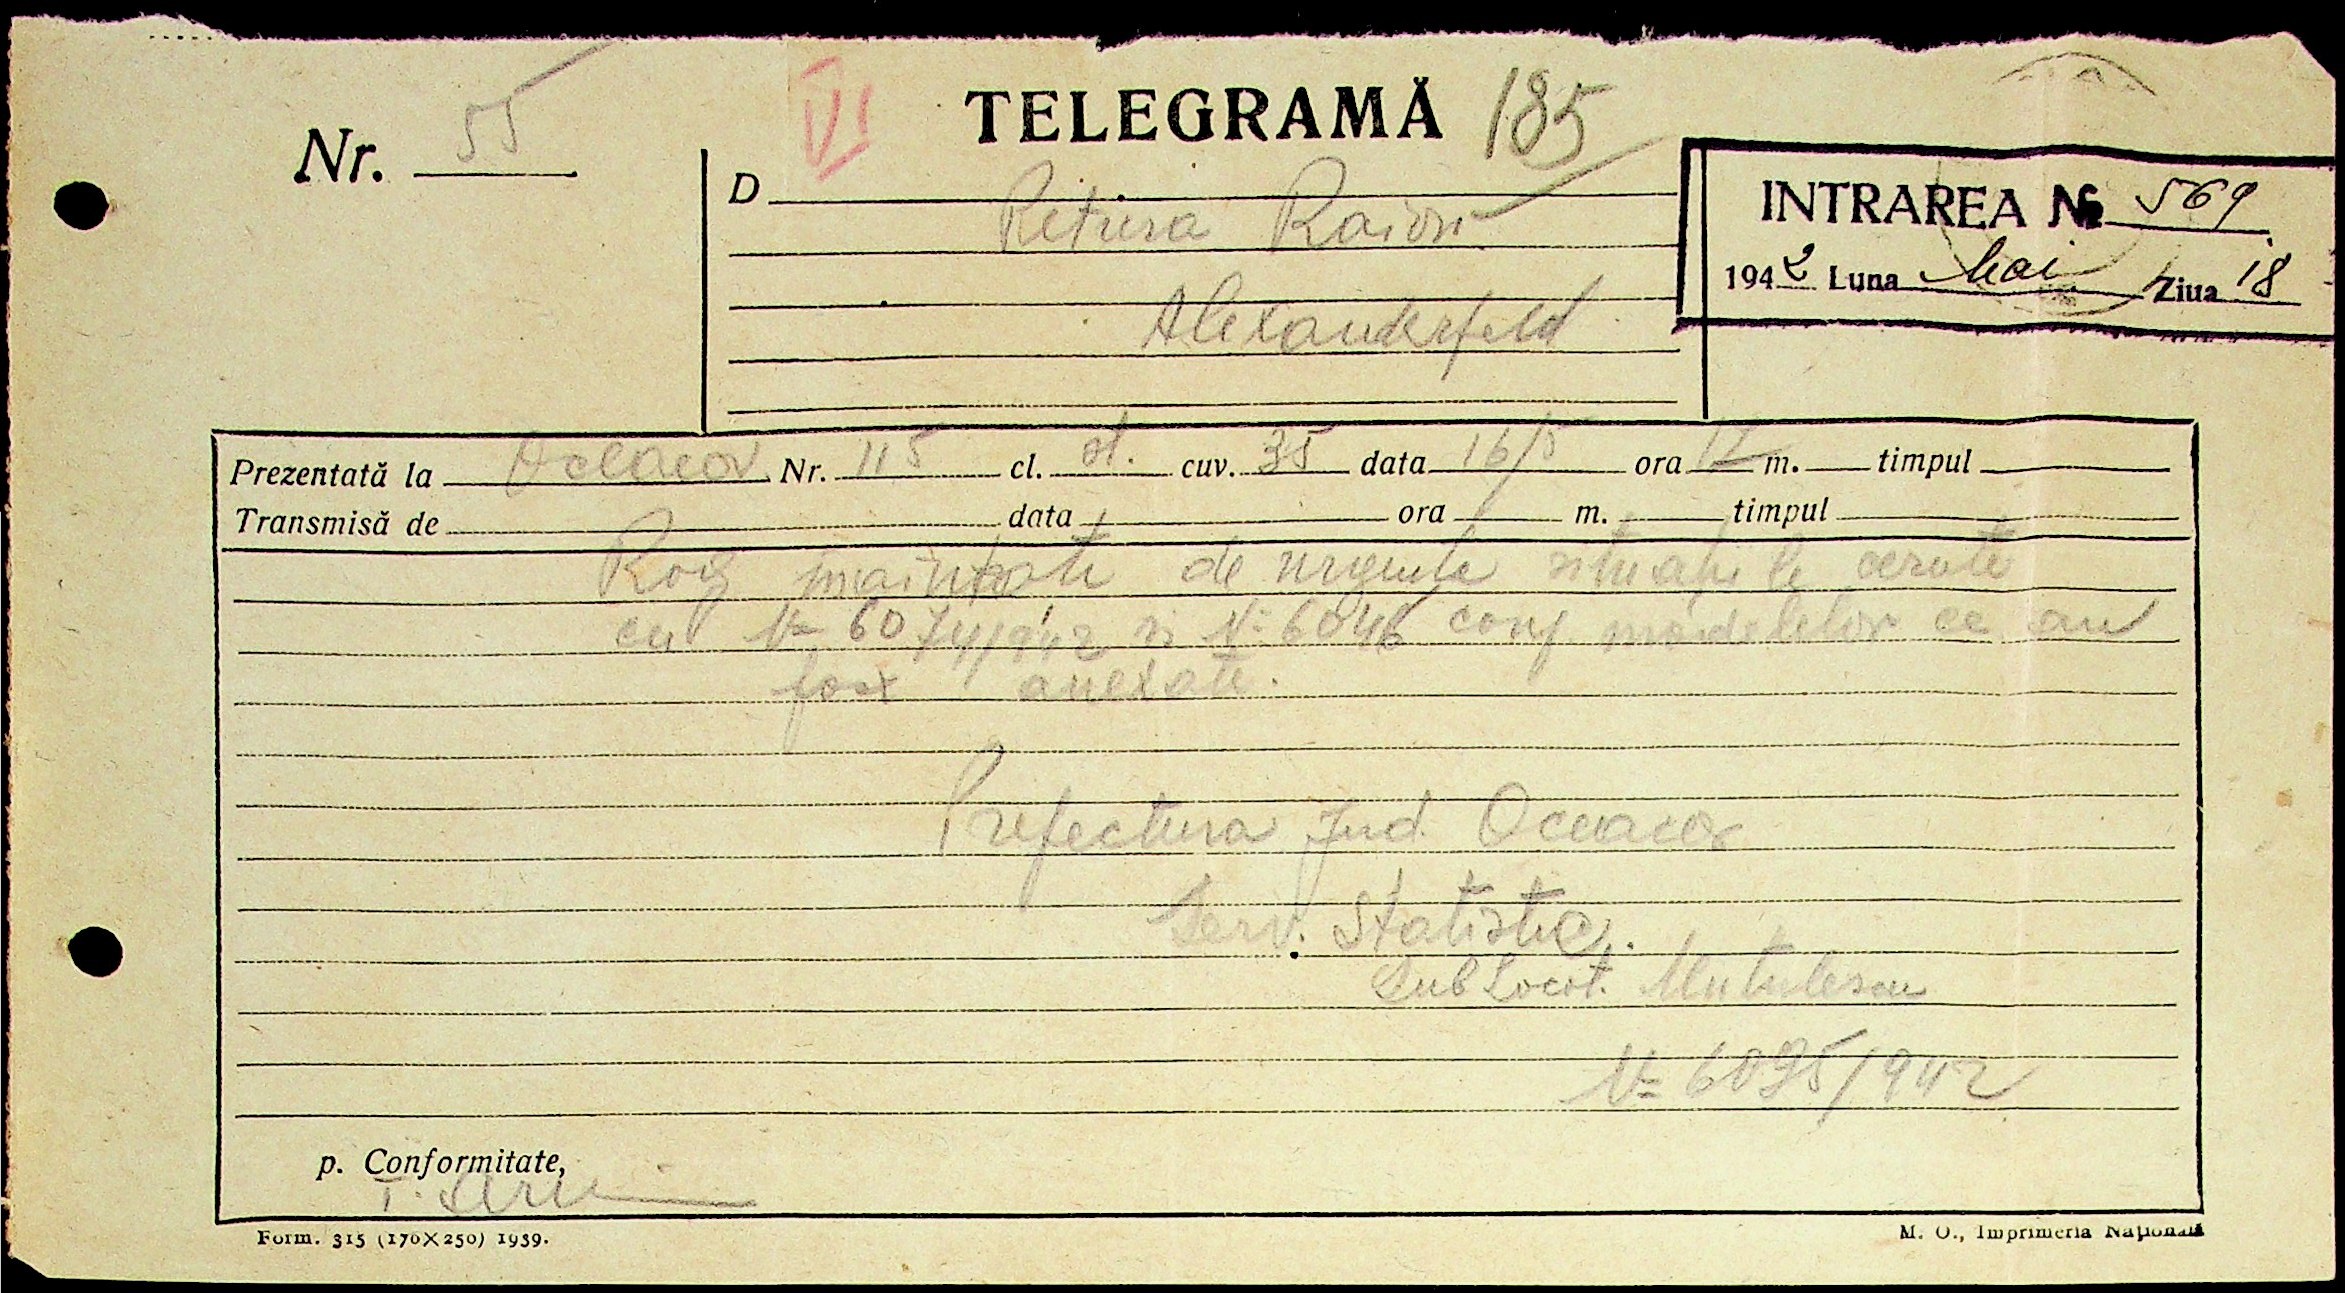 VI
TELEGRAMĂ 185
Nr. 55
D
Pretura Raion
Alexanderfeld
INTRAREA No 569
1942 Luna Mai Ziua 18
Prezentată la Oceacov Nr. 115 cl. st. cuv. 35 data 16/5 ora 12 m. timpul
Transmisă de data ora m. timpul
Rog inaintati de urgenta situatiile cerute
cu No 6074/942 si No 6046 conf. modelelor ce au
fost anexate.
Prefectura Jud. Oceacov
Serv. Statistic.
SubLocot. Mutulescu
No 6095/942
p. Conformitate,
Form. 315 (170X250) 1939.
M. O., Imprimeria Națională